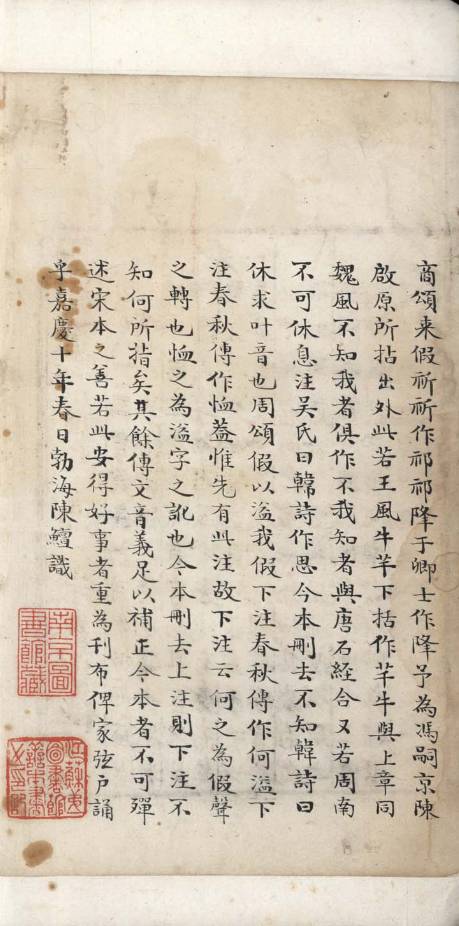 商頌来假祈祈作祁祁降于卿士作降予為馮嗣京陳
啟原所拈出外此若王風牛羊下括作羊牛與上章同
魏風不知我者俱作不我知者與唐石經合又若周南
不可休息注吴氏曰韓詩作思今本刪去不知韓詩曰
休求叶音也周頌假以溢我假下注春秋傳作何溢下
注春秋傳作恤葢惟先有此注故下注云何之為假聲
之轉也恤之為溢字之訛也今本刪去上注則下注不
知何所指矣其餘傳文音義足以補正今本者不可殫
述宋本之善若此安得好事者重為刊布俾家弦户誦
乎嘉慶十年春日勃海陳鱣識
南京圖
書館藏